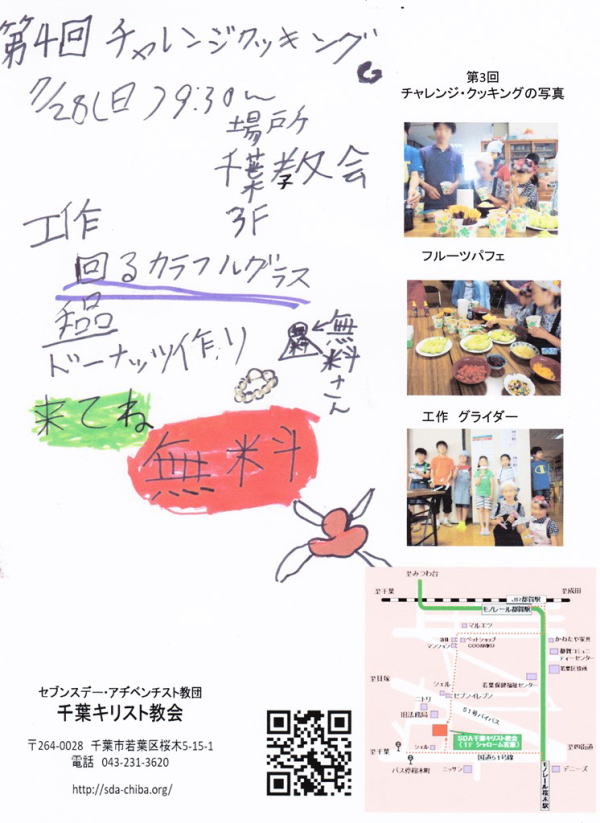 第4回 チャレンジクッキング
7/28(日) 9:30～
場所
千葉教会
3F
工作
回るカラフルグラス
ドーナッツ作り
無料さん
来てね
無料
第3回
チャレンジ・クッキングの写真
フルーツパフェ
工作 グライダー
至みつわ台
至千葉
JR都賀駅
至成田
モノレール都賀駅
マルエツ
マンション
ペットショップ
かねたや家具
都賀コミュニティーセンター
若葉区役所
至貝塚
シェル
セブンイレブン
若葉保健福祉センター
ニトリ
旧法務局
51号バイパス
SDA千葉キリスト教会
(1F シャローム若葉)
至千葉
シェル
国道51号線
至四街道
バス停桜木町
ニッサン
デニーズ
モノレール桜木駅
セブンスデー・アドベンチスト教団
千葉キリスト教会
〒264-0028 千葉市若葉区桜木5-15-1
電話 043-231-3620
http://sda-chiba.org/